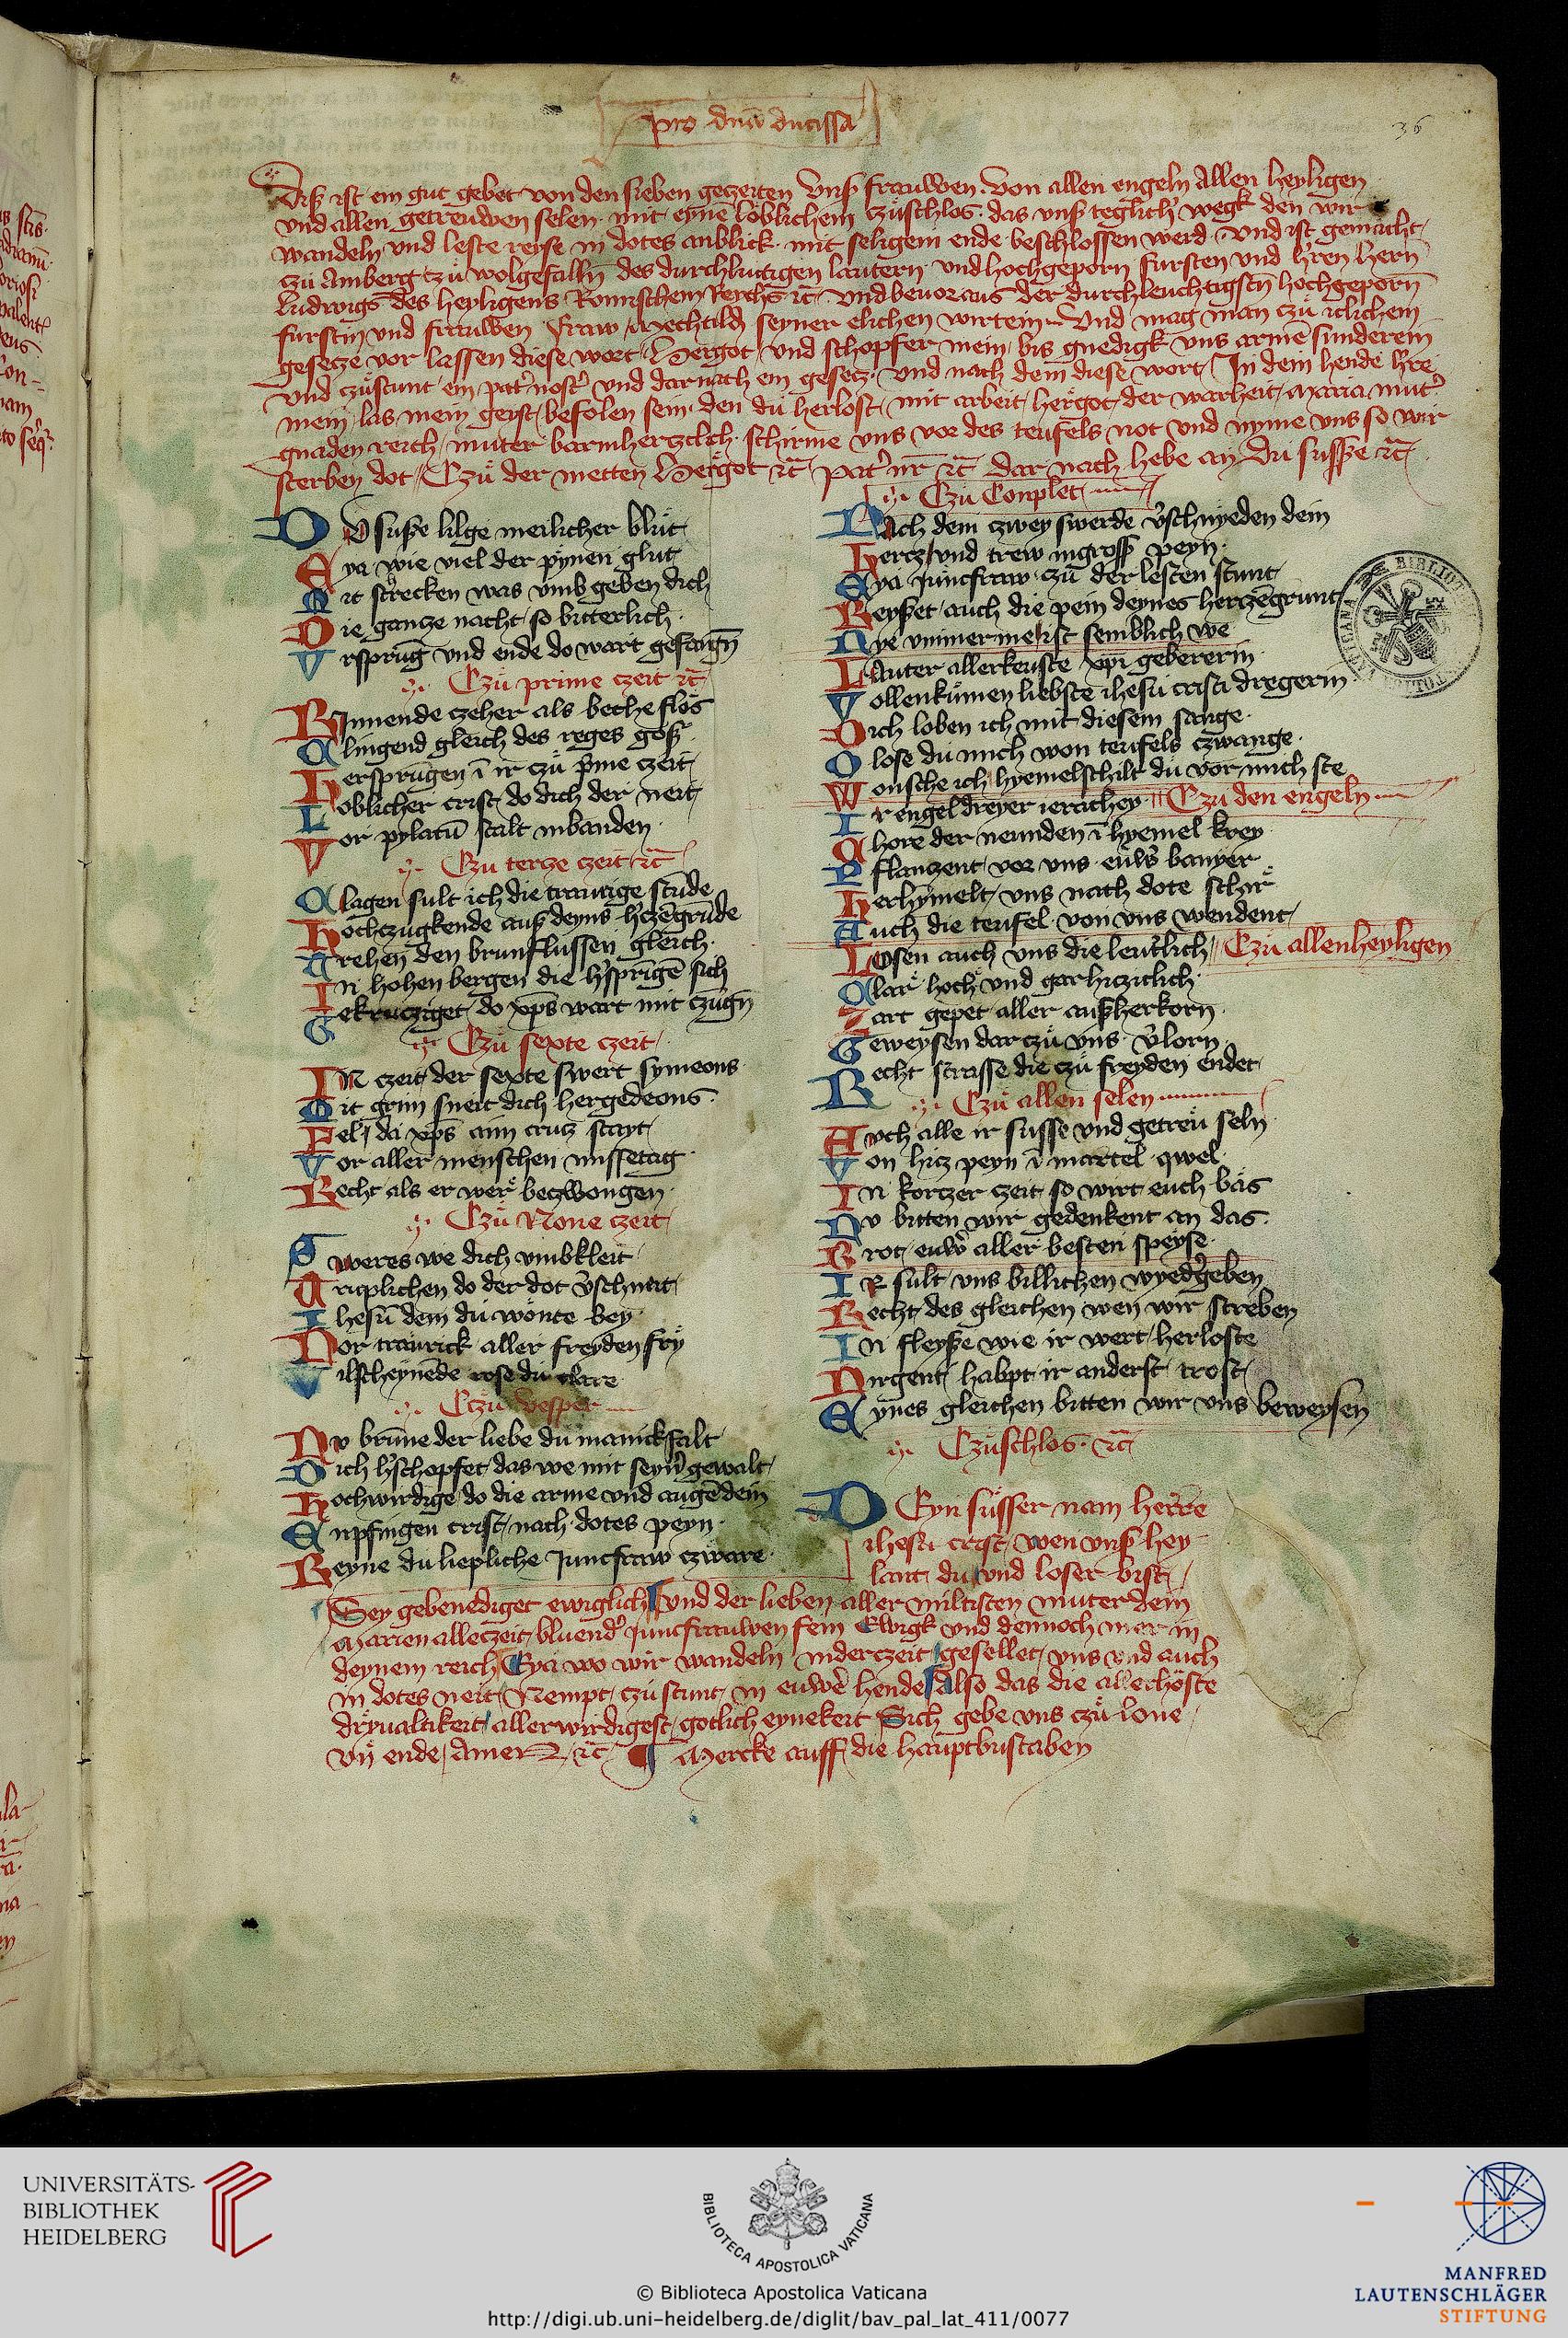 pro dnā ducissa
36
Diß ist ein gut gebet von den sieben geczeiten vnß frauwen. von allen engeln Allen heyligen
vnd allen getreuwen selen. mit eynē loblichem czůschlos. das vnß teglich' wegk den wir
wandeln vnd leste reyse in dotes anblick. mit seligem ende beschlossen werd. vnd ist gemacht
czů Amberg tzů wolgefalln des durchluttigen lautern vnd hochgeporn fursten vnd h'ren hern
ludwigs des heyligens Romschem Reichs ꝛc̄. vnd beuoraus der durchleuchtigstn̄ hochgeporn̄
furstin vnd frauwen Fraw Mechtild seyner elichen wirtein. Vnd mag man czů iclichem
gesecze vor lassen diese wort. Hergot vnd schopfer mein bis gnedigk vns armē sunderein
vnd czůstunt ein pat' nost' vnd darnach ein gesecz. vnd nach dem diese wort. In dein hende h're
mein las mein geyst befolen sein. den du herlost mit arbeit hergot der warheit. Maria mut'
gnaden reich muter barmherczclch. schirme vns vor des teufels not vnd nyme vns so wir
sterben dot. Czů der metten Hergot ꝛc̄ pat' nr̄ ꝛc̄ dar nach hebe an Du susse ꝛc̄
DV suße lilge meilicher blůt
Aya wie viel der pynen glut
Mit schrecken was vmb geben dich
Die gancze nacht so bitterlich.
Vrsprūg vnd ende do wart gefangn̄
Czů prime czeit ꝛc̄
RInnende czeher als beche flos
Clingend gleich des reges gosz
Hersprūgen ī ir czů p̄me czeit
Loblicher crist do dich der neit
Vor pylatū stalt in banden.
Czu tercze czeit ꝛc̄
Clagen sult ich die traurige stūde
Hochczugkende auß deyns h'czēgrūde
Trehen den brunflussen gleich.
In hohen bergen die h'sprīgē sich
Gekrucziget do xp̄s wart mit czūgn̄
Czů sexte czeit.
IN czeit der sexte swert symeons
Mit grim sneit dich hergedeons.
Fel da xp̄s ann crucz stayt
Vor aller menschen missetag.
Recht als er wer beczwongen.
Czů None czeit
Sweres we dich vmbkleit
Ariplichen do der dot v'schneit
Ihesū dem du wonte bey.
Dor traurick aller freyden fry
Vilscheynēde rose du clare
Czů vesper
Dv brūne der liebe du manickfalt
Dich h'schopfet das we mit seyn' gewalt
Hochwirdige do die arme vnd augē dein
Enpfingen crist nach dotes peyn.
Reyne du liepliche Juncfraw czware.
Czů Conplet
Nach dem czwey swerde v'schnyeden dem
Hercz vnd trew in gross peyn.
Eya Juncfraw czů der lesten stunt
Reysset auch die pein deynes herczēgrunt
Nye vmmer me ist semblich we
LAuter allerkeuste xp̄i gebererin.
Vollenkumen liebste ihesu cristi dregerin
Dich loben ich mit diesem sange.
Olose du mich von teufels czwange.
Wonsche ich hyemelschilt du vor mich ste
Ir engel dreyer ierachey. Czů den engeln
Chore der neunden ī hyemel krey
Pflanczent vor vns euw' banyer.
Herhymelt vns nach dote schir
Auch die teufel von vns wendent
LOsen auch vns die leutlich. Czů allen heyligen
Clar hoch vnd gar hicziclich.
Zart gepet aller außherkorn.
Geweysen dar czů vns v'lorn.
Recht strasse die czů freyden endet
Czů allen selen
Avch alle ir susse vnd getreu seln.
Von hicz peyn ī martel qwel.
In korczer czeit so wirt euch bas
Nv bitten wir gedenkent an das.
Brot euw' aller besten speyse.
IR sult vns billichen wyed'geben
Recht des gleichen wen wir streben
In fleyße wie ir wert herloste
Nirgent habpt ir anderst trost
Eynes gleichen bitten wir vns beweysen
Czůschlos. ꝛc̄
DEyn susser nam herre
ihesu crist wen vnß hey-
lant du vnd loser bist
Sey gebenediget ewiglich vnd der lieben aller miltisten muter dein
Marien alleczeit bluend' Juncfrauwen fein Ewigk vnd dennoch mer in
deynem reich Eya wo wir wandeln in der czeit gesellet vns vnd auch
in dotes neit Nempt czu stunt in euwer hende also das die allerhoste
dryualtikeit allerwirdigest gotlich eynekeit Sich gebe vns czů lone
vn̄ ende Amen ꝛc̄ ¶ Mercke auff die hauptbustaben
UNIVERSITÄTS-
BIBLIOTHEK
HEIDELBERG
BIBLIOTECA APOSTOLICA VATICANA
© Biblioteca Apostolica Vaticana
http://digi.ub.uni-heidelberg.de/diglit/bav_pal_lat_411/0077
MANFRED
LAUTENSCHLÄGER
STIFTUNG